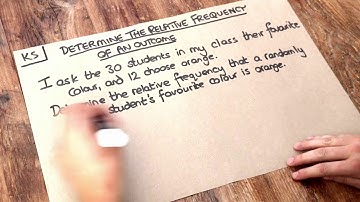 K5
DETERMINE THE RELATIVE FREQUENCY
OF AN OUTCOME
I ask the 30 students in my class their favourite
colour, and 12 choose orange.
Determine the relative frequency that a randomly
student's favourite colour is orange.